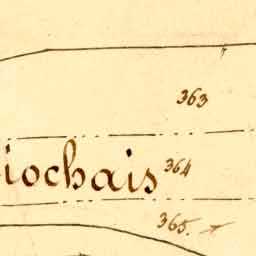 363
iochais 364
365.